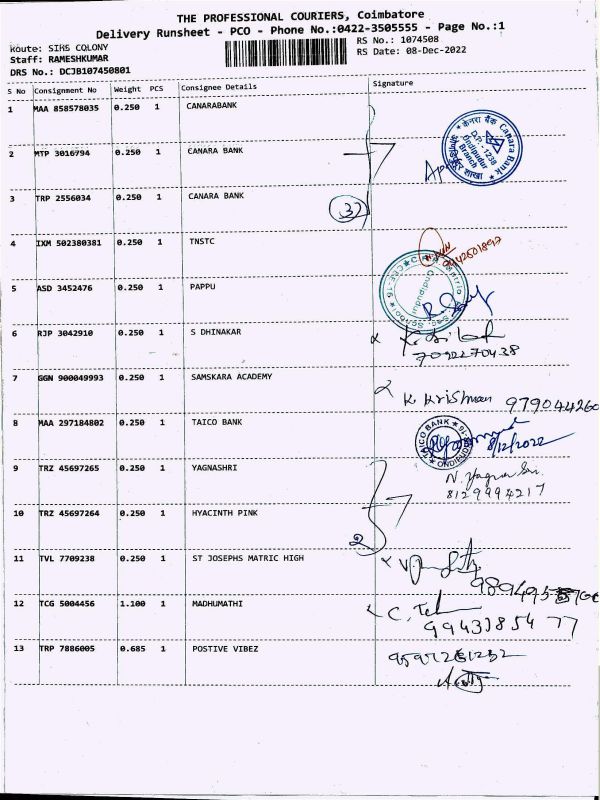 THE PROFESSIONAL COURIERS, Coimbatore
Delivery Runsheet - PCO - Phone No.:0422-3505555 - Page No.:1
Route: SIHS COLONY
RS No.: 1074508
Staff: RAMESHKUMAR
RS Date: 08-Dec-2022
DRS No.: DCJB107450801
S No Consignment No Weight PCS Consignee Details Signature
1 MAA 858578035 0.250 1 CANARABANK
2 MTP 3016794 0.250 1 CANARA BANK
3 TRP 2556034 0.250 1 CANARA BANK
केनरा बैंक Canara Bank
D.P. - 1238
Ondipudur
Branch
शाखा
3
4 IXM 502380381 0.250 1 TNSTC
5 ASD 3452476 0.250 1 PAPPU
Ondipudur
6 RJP 3042910 0.250 1 S DHINAKAR
7092270438
7 GGN 900049993 0.250 1 SAMSKARA ACADEMY
K. Krishnan 979044260
8 MAA 297184802 0.250 1 TAICO BANK
TAICO BANK
ONDIPUDUR
8/12/2022
9 TRZ 45697265 0.250 1 YAGNASHRI
8129994217
10 TRZ 45697264 0.250 1 HYACINTH PINK
2
11 TVL 7709238 0.250 1 ST JOSEPHS MATRIC HIGH
12 TCG 5004456 1.100 1 MADHUMATHI
9943185477
13 TRP 7886005 0.685 1 POSTIVE VIBEZ